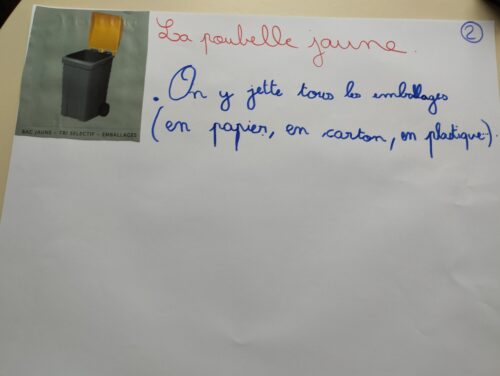 La poubelle jaune.
2
. On y jette tous les emballages
(en papier, en carton, en plastique).
BAC JAUNE - TRI SÉLECTIF - EMBALLAGES